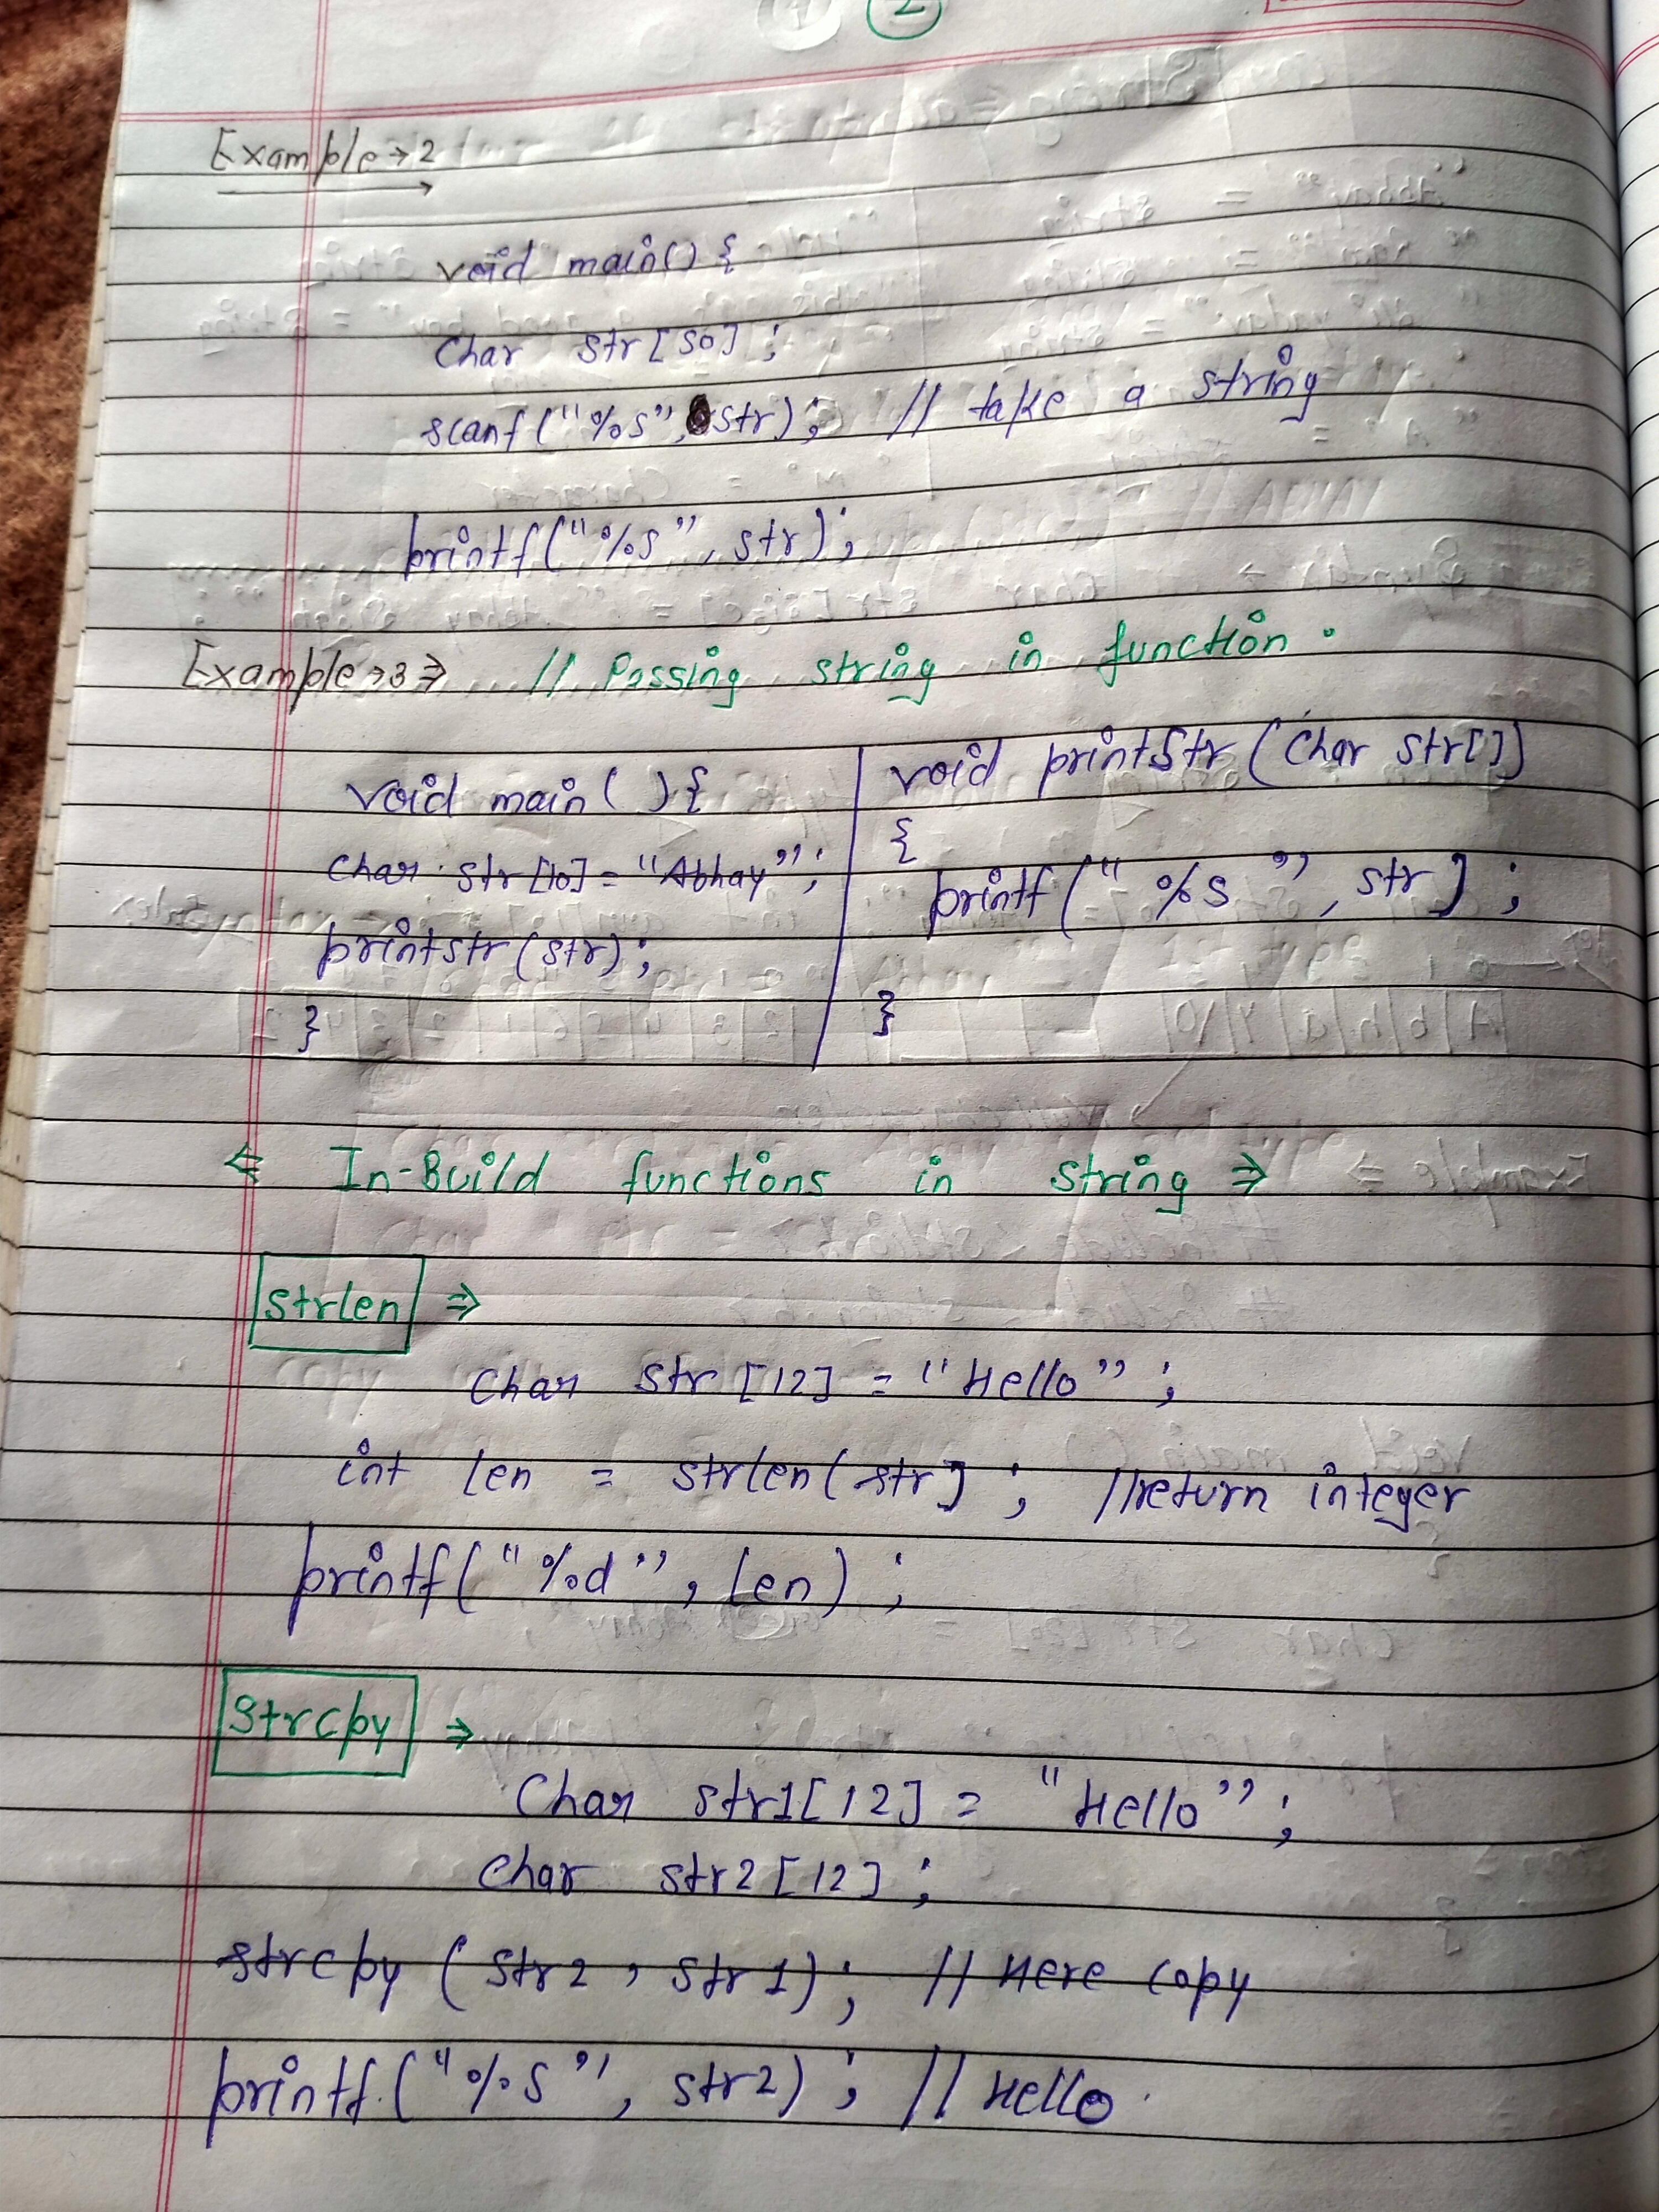 2
Example → 2
void main() {
char str[50];
scanf("%s", str); // take a string
printf("%s", str);
Example → 3 ⇒ // Passing string in function.
void main( ) {
char str[10] = "Abhay";
printstr(str);
}
void printStr(char str[])
{
printf(" %s ", str);
}
⇐ In-Build functions in string ⇒
strlen ⇒
Char str[12] = "Hello";
int len = strlen(str); //return integer
printf("%d", len);
strcpy ⇒
Char str1[12] = "Hello";
char str2[12];
strcpy(str2, str1); // Here copy
printf("%s", str2); // Hello